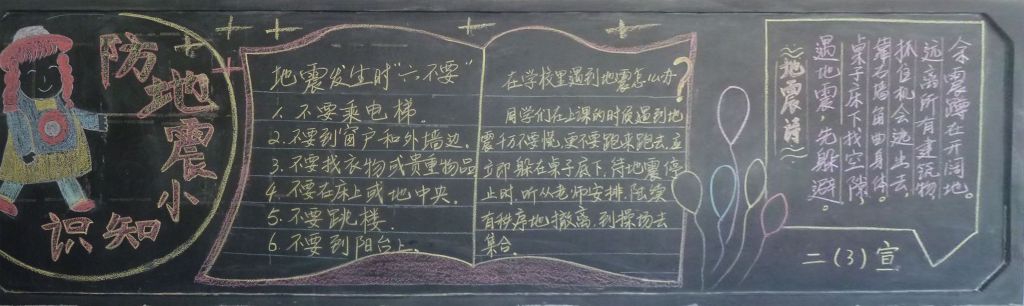 防地震小
知识
地震发生时“六不要”
1.不要乘电梯.
2.不要到窗户和外墙边.
3.不要找衣物或贵重物品
4.不要在床上或地中央.
5.不要跳楼.
6.不要到阳台上.
在学校里遇到地震怎么办?
同学们在上课的时候遇到地
震千万不要慌,更不要跑来跑去,立
立即躲在桌子底下,待地震停
止时,听从老师安排,陆续
有秩序地撤离,到操场去
集合。
地震诗
遇地震,先躲避。
桌子床下找空隙。
靠在墙角曲身体。
抓住机会逃出去,
远离所有建筑物,
余震蹲在开阔地。
二(3)宣